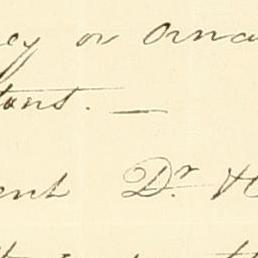 ey or orna
tons. —
ent Dr. H